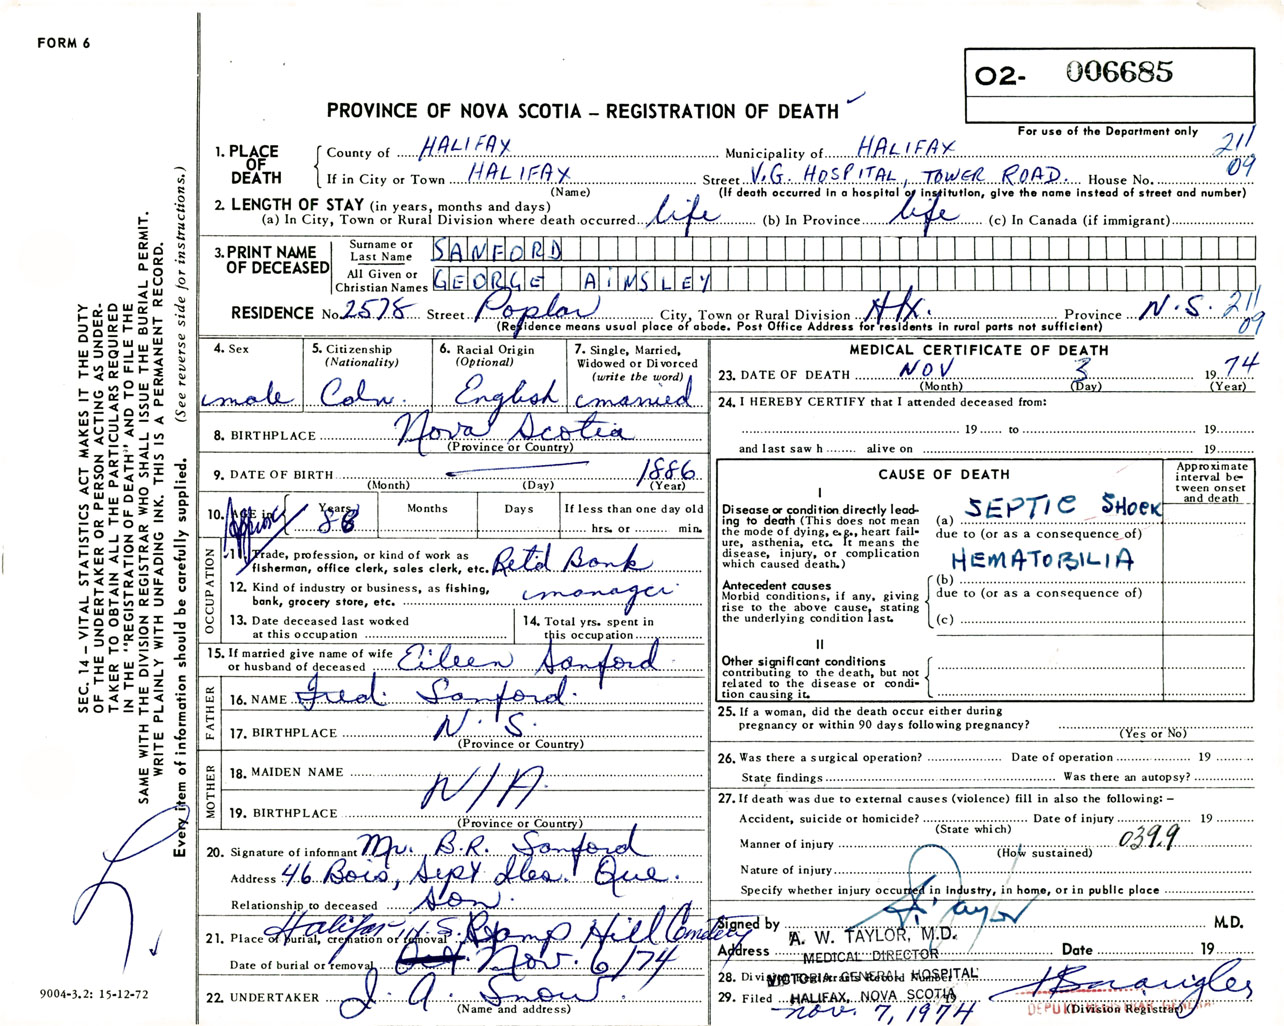 FORM 6
O2- 006685
PROVINCE OF NOVA SCOTIA – REGISTRATION OF DEATH
For use of the Department only
211
09
1. PLACE OF DEATH
County of HALIFAX Municipality of HALIFAX
If in City or Town HALIFAX Street V.G. HOSPITAL, TOWER ROAD. House No.
(Name) (If death occurred in a hospital or institution, give the name instead of street and number)
2. LENGTH OF STAY (in years, months and days)
(a) In City, Town or Rural Division where death occurred life (b) In Province life (c) In Canada (if immigrant)
3. PRINT NAME OF DECEASED
Surname or Last Name SANFORD
All Given or Christian Names GEORGE AINSLEY
RESIDENCE No. 2578 Street Poplar City, Town or Rural Division Hfx. Province N.S. 211
09
(Residence means usual place of abode. Post Office Address for residents in rural parts not sufficient)
4. Sex
male
5. Citizenship
(Nationality)
Cdn.
6. Racial Origin
(Optional)
English
7. Single, Married,
Widowed or Divorced
(write the word)
married
8. BIRTHPLACE Nova Scotia
(Province or Country)
9. DATE OF BIRTH 1886
(Month) (Day) (Year)
10. AGE in Years 88 Months Days If less than one day old
Approx
hrs. or min.
OCCUPATION
11. Trade, profession, or kind of work as
fisherman, office clerk, sales clerk, etc. Ret'd Bank
12. Kind of industry or business, as fishing,
bank, grocery store, etc. manager
13. Date deceased last worked
at this occupation
14. Total yrs. spent in
this occupation
15. If married give name of wife
or husband of deceased Eileen Sanford
FATHER
16. NAME Fred. Sanford.
17. BIRTHPLACE N.S.
(Province or Country)
MOTHER
18. MAIDEN NAME
N/A
19. BIRTHPLACE
(Province or Country)
20. Signature of informant Mr. B.R. Sanford
Address 46 Bois, Sept Iles. Que.
Relationship to deceased son.
Halifax N.S.
21. Place of burial, cremation or removal Camp Hill Cemetery
Date of burial or removal Nov. 6/74
22. UNDERTAKER J. A. Snow
(Name and address)
MEDICAL CERTIFICATE OF DEATH
23. DATE OF DEATH NOV 3 19 74
(Month) (Day) (Year)
24. I HEREBY CERTIFY that I attended deceased from:
19 to 19
and last saw h alive on 19
CAUSE OF DEATH
Approximate
interval be-
tween onset
and death
I
Disease or condition directly lead-
ing to death (This does not mean
the mode of dying, e.g., heart fail-
ure, asthenia, etc. It means the
disease, injury, or complication
which caused death.)
(a) SEPTIC SHOCK
due to (or as a consequence of)
HEMATOBILIA
Antecedent causes
Morbid conditions, if any, giving
rise to the above cause, stating
the underlying condition last.
(b)
due to (or as a consequence of)
(c)
II
Other significant conditions
contributing to the death, but not
related to the disease or condi-
tion causing it.
25. If a woman, did the death occur either during
pregnancy or within 90 days following pregnancy?
(Yes or No)
26. Was there a surgical operation? Date of operation 19
State findings Was there an autopsy?
27. If death was due to external causes (violence) fill in also the following: –
Accident, suicide or homicide? Date of injury 19
(State which)
Manner of injury 0399
(How sustained)
Nature of injury
Specify whether injury occurred in industry, in home, or in public place
Signed by A. Taylor M.D.
A. W. TAYLOR, M.D.
Address Date 19
MEDICAL DIRECTOR
28. Division Registrar's Record Number
VICTORIA GENERAL HOSPITAL
29. Filed 19
HALIFAX, NOVA SCOTIA
Nov. 7, 1974
DEPUTY REGISTRAR GENERAL
(Division Registrar)
SEC. 14 – VITAL STATISTICS ACT MAKES IT THE DUTY
OF THE UNDERTAKER OR PERSON ACTING AS UNDER-
TAKER TO OBTAIN ALL THE PARTICULARS REQUIRED
IN THE "REGISTRATION OF DEATH" AND TO FILE THE
SAME WITH THE DIVISION REGISTRAR WHO SHALL ISSUE THE BURIAL PERMIT.
WRITE PLAINLY WITH UNFADING INK. THIS IS A PERMANENT RECORD.
Every item of information should be carefully supplied. (See reverse side for instructions.)
9004-3.2: 15-12-72